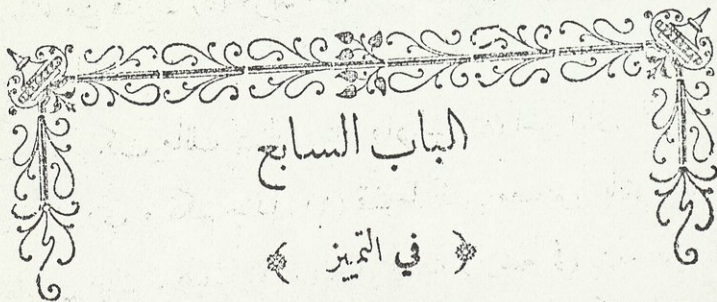 الباب السابع
﴿ في التمييز ﴾